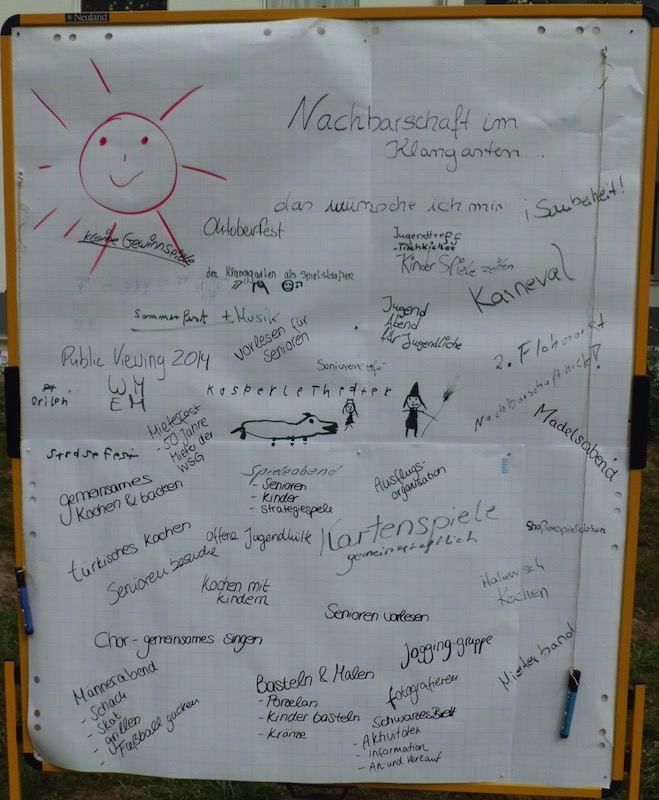 Neuland
Nachbarschaft im
Klangarten...
das wünsche ich mir
¡Sauberheit!
Oktoberfest
Jugendtreff
-Tischkicker
kleine Gewinnspiele
Kinder Spiele
Karneval
der Klanggarten als
Sommerfest + Musik
Jugend
Abend
für Jugendliche
vorlesen für
Senioren
2. Flohmarkt
Public Viewing 2014
WM
EM
Kasperletheater
Mieterfest
50 Jahre
Mieter der
WSG
Mädelsabend
gemeinsames
Kochen & backen
Spieleabend
- Senioren
- Kinder
- Strategiespiele
Ausflugs-
organisation
türkisches Kochen
Offene Jugendhilfe
Kartenspiele
gemeinschaftlich
Senioren besuche
Kochen mit
Kindern
italienisch
Kochen
Senioren vorlesen
Chor-gemeinsames singen
Jogging-gruppe
Mieterband
Männerabend
- Schach
- Skat
- grillen
- Fußball gucken
Basteln & Malen
- Porzelan
- Kinder basteln
- Kränze
fotografieren
Schwarzes Brett
- Aktivitäten
- Information
- An und Verkauf